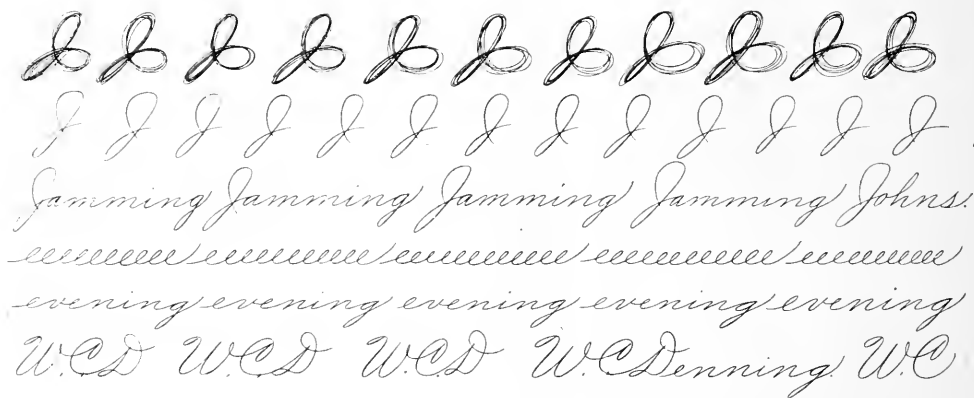 J J J J J J J J J J J
J J J J J J J J J J J J J
Jamming Jamming Jamming Jamming Johns.
eeeeeeeeeee eeeeeeeeeeee eeeeeeeeeeee eeeeeeeeeeee eeeeeeeeee
evening evening evening evening evening
W.C.D W.C.D W.C.D W.C.Denning. W.C